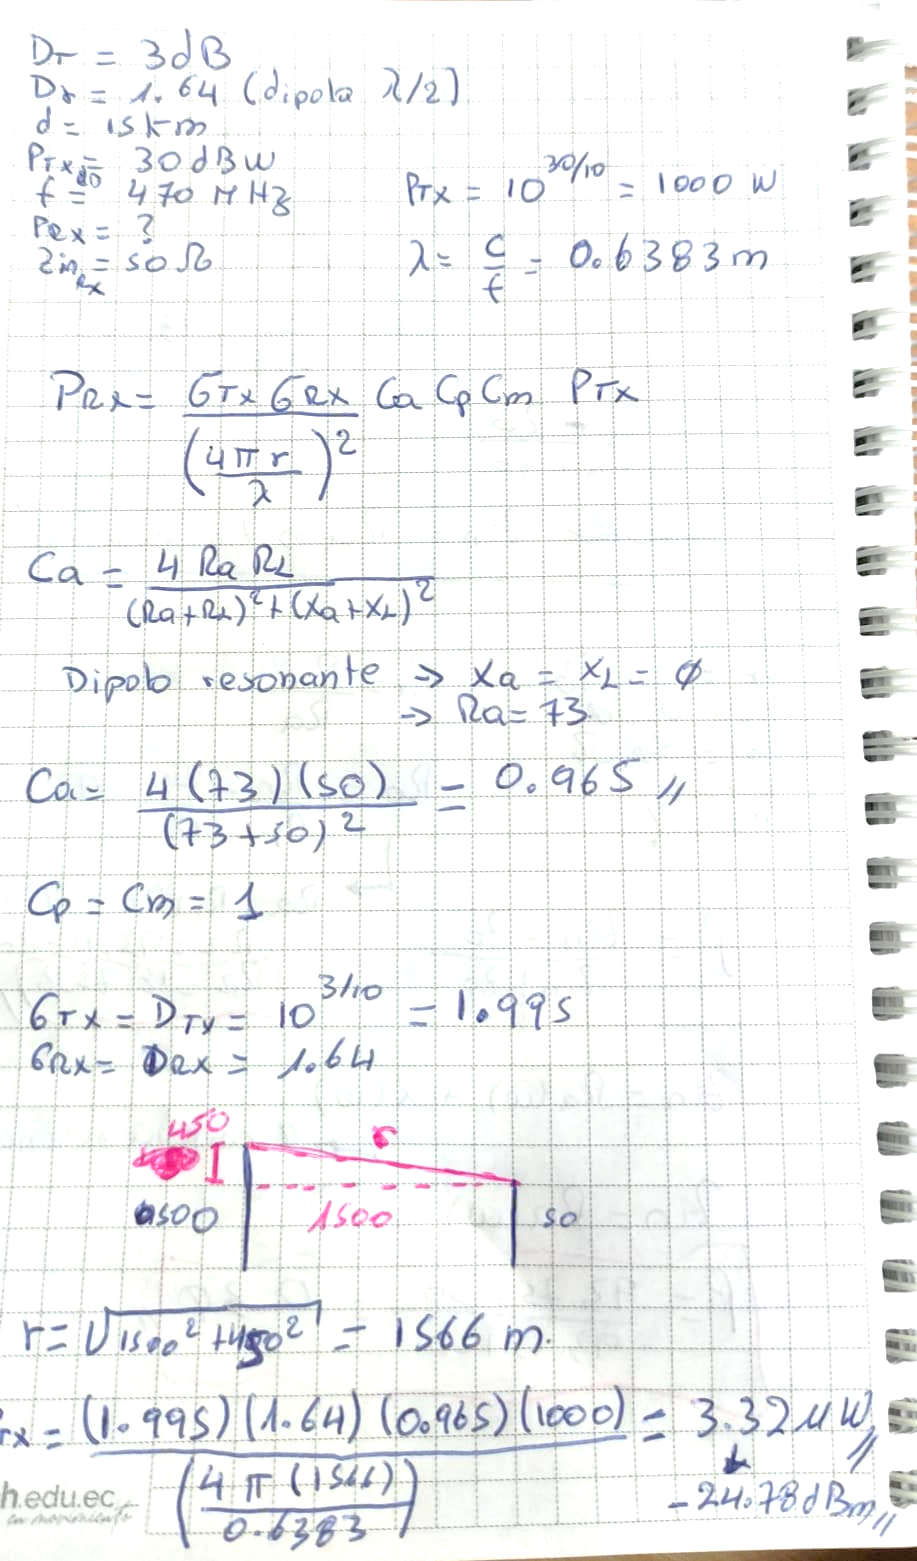 Dт = 3dB
Dr = 1.64 (dipolo λ/2)
d = 15 km
PTx = 30 dBW
f = 470 MHz
PTx = 10^30/10 = 1000 W
PRx = ?
Zin Rx = 50 Ω
λ = c/f = 0.6383 m
PRx = GTx GRx / (4πr/λ)^2 Ca Cp Cm PTx
Ca = 4 Ra RL / (Ra+RL)^2 + (Xa+XL)^2
Dipolo resonante → Xa = XL = ∅
→ Ra = 73
Ca = 4(73)(50) / (73+50)^2 = 0.965 //
Cp = Cm = 1
GTx = DTx = 10^3/10 = 1.995
GRx = DRx = 1.64
450
r
500
1500
50
r = √1500^2 + 450^2 = 1566 m.
rx = (1.995)(1.64)(0.965)(1000) / (4π(1566)/0.6383) = 3.32 μW //
-24.78 dBm //
h.edu.ec
en movimiento